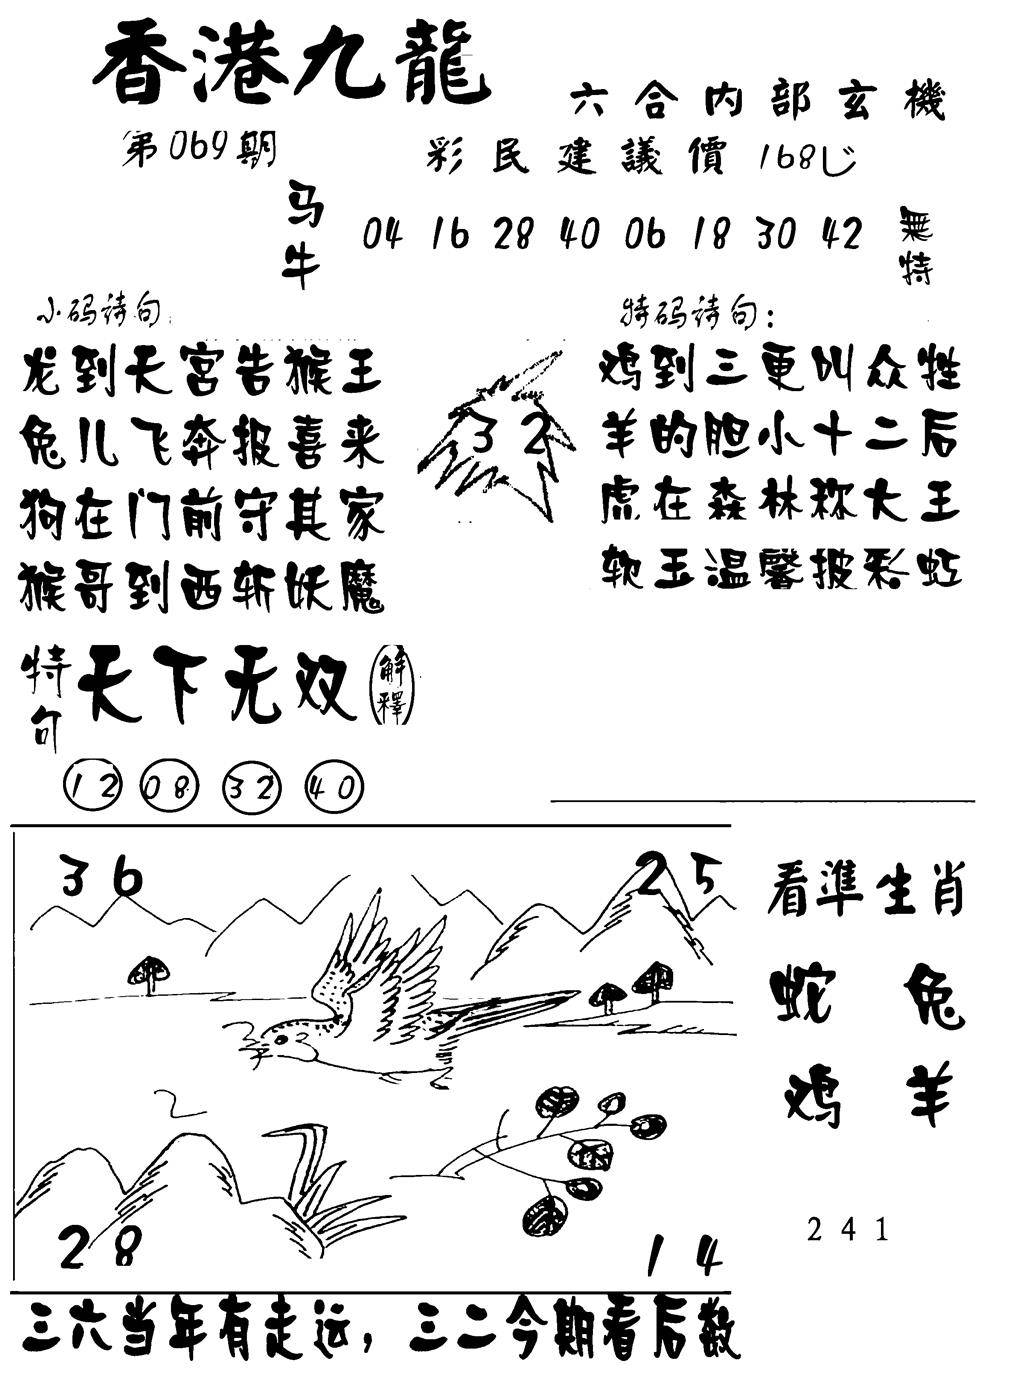 香港九龍
六合内部玄機
第069期
彩民建議價168
马牛
04 16 28 40 06 18 30 42
無特
小码诗句
特码诗句:
龙到天宫告猴王
兔儿飞奔报喜来
狗在门前守其家
猴哥到西斩妖魔
32
鸡到三更叫众牲
羊的胆小十二后
虎在森林称大王
软玉温馨披彩虹
特句
天下无双
解釋
12 08 32 40
36
25
28
14
看準生肖
蛇 兔
鸡 羊
241
三六当年有走运，三二今期看后数